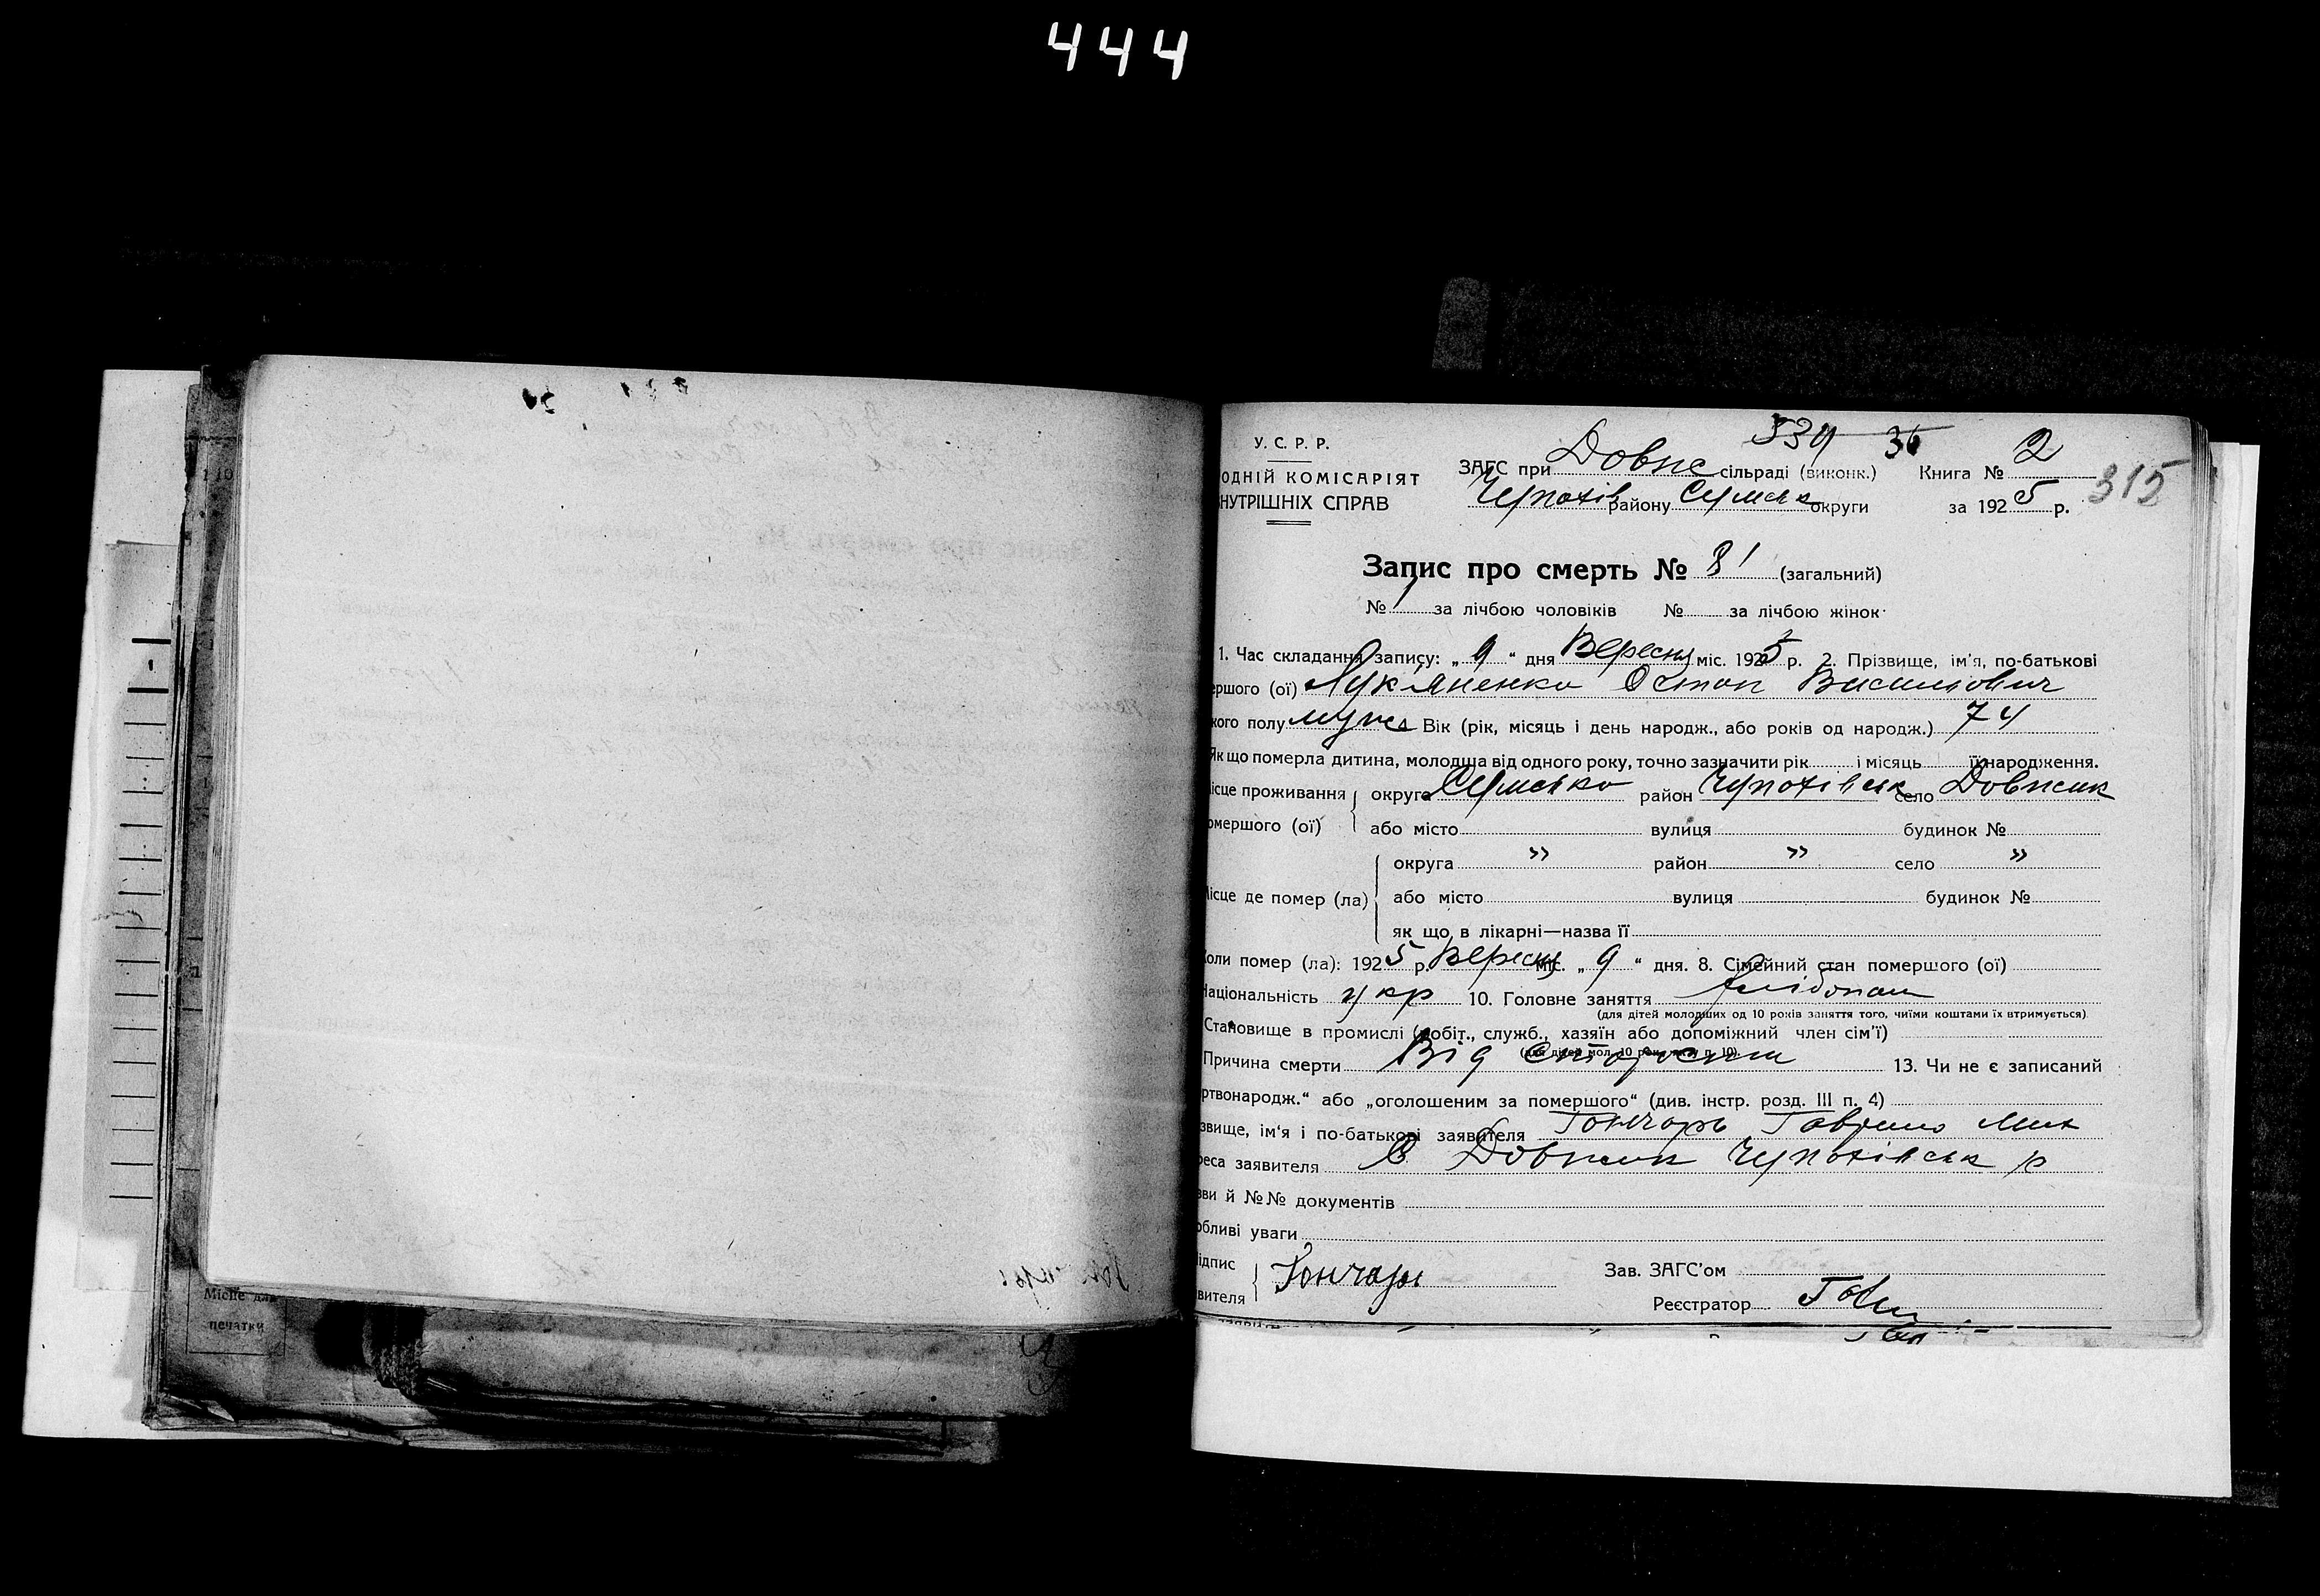 444
334 36
У. С. Р. Р. ЗАГС при Довже сільраді (виконк.) Книга № 2
ОДНІЙ КОМІСАРІЯТ Чупахів району Сумськ округи за 1925 р. 315
НУТРІШНІХ СПРАВ
Запис про смерть № 81 (загальний)
№ за лічбою чоловіків № за лічбою жінок
1. Час складання запису: „ 9 “ дня Вересня міс. 1925 р. 2. Прізвище, ім'я, по-батькові
ершого (ої) Лукяненко Остап Васильович
кого полу муже Вік (рік, місяць і день народж., або років од народж.) 74
Як що померла дитина, молодша від одного року, точно зазначити рік і місяць її народження.
ісце проживання округа Сумсько район Чупахівськ село Довжик
омершого (ої) або місто вулиця будинок №
округа » район » село »
ісце де помер (ла) або місто вулиця будинок №
як що в лікарні—назва її
оли помер (ла): 1925 р. Вересня міс. „ 9 “ дня. 8. Сімейний стан помершого (ої)
Національність укр 10. Головне заняття
(для дітей молодших од 10 років заняття того, чиїми коштами їх втримується)
Становище в промислі (робіт., служб., хазяїн або допоміжний член сім'ї)
Причина смерти Від старости 13. Чи не є записаний
ртвонародж.“ або „оголошеним за помершого“ (див. інстр. розд. III п. 4)
звище, ім'я і по-батькові заявителя Гончарь Гаврило Мих
реса заявителя С Довжик Чупахівськ р
зви й №№ документів
обливі уваги
ідпис Гончарь Зав. ЗАГС'ом
вителя Реєстратор
Місце для
печатки